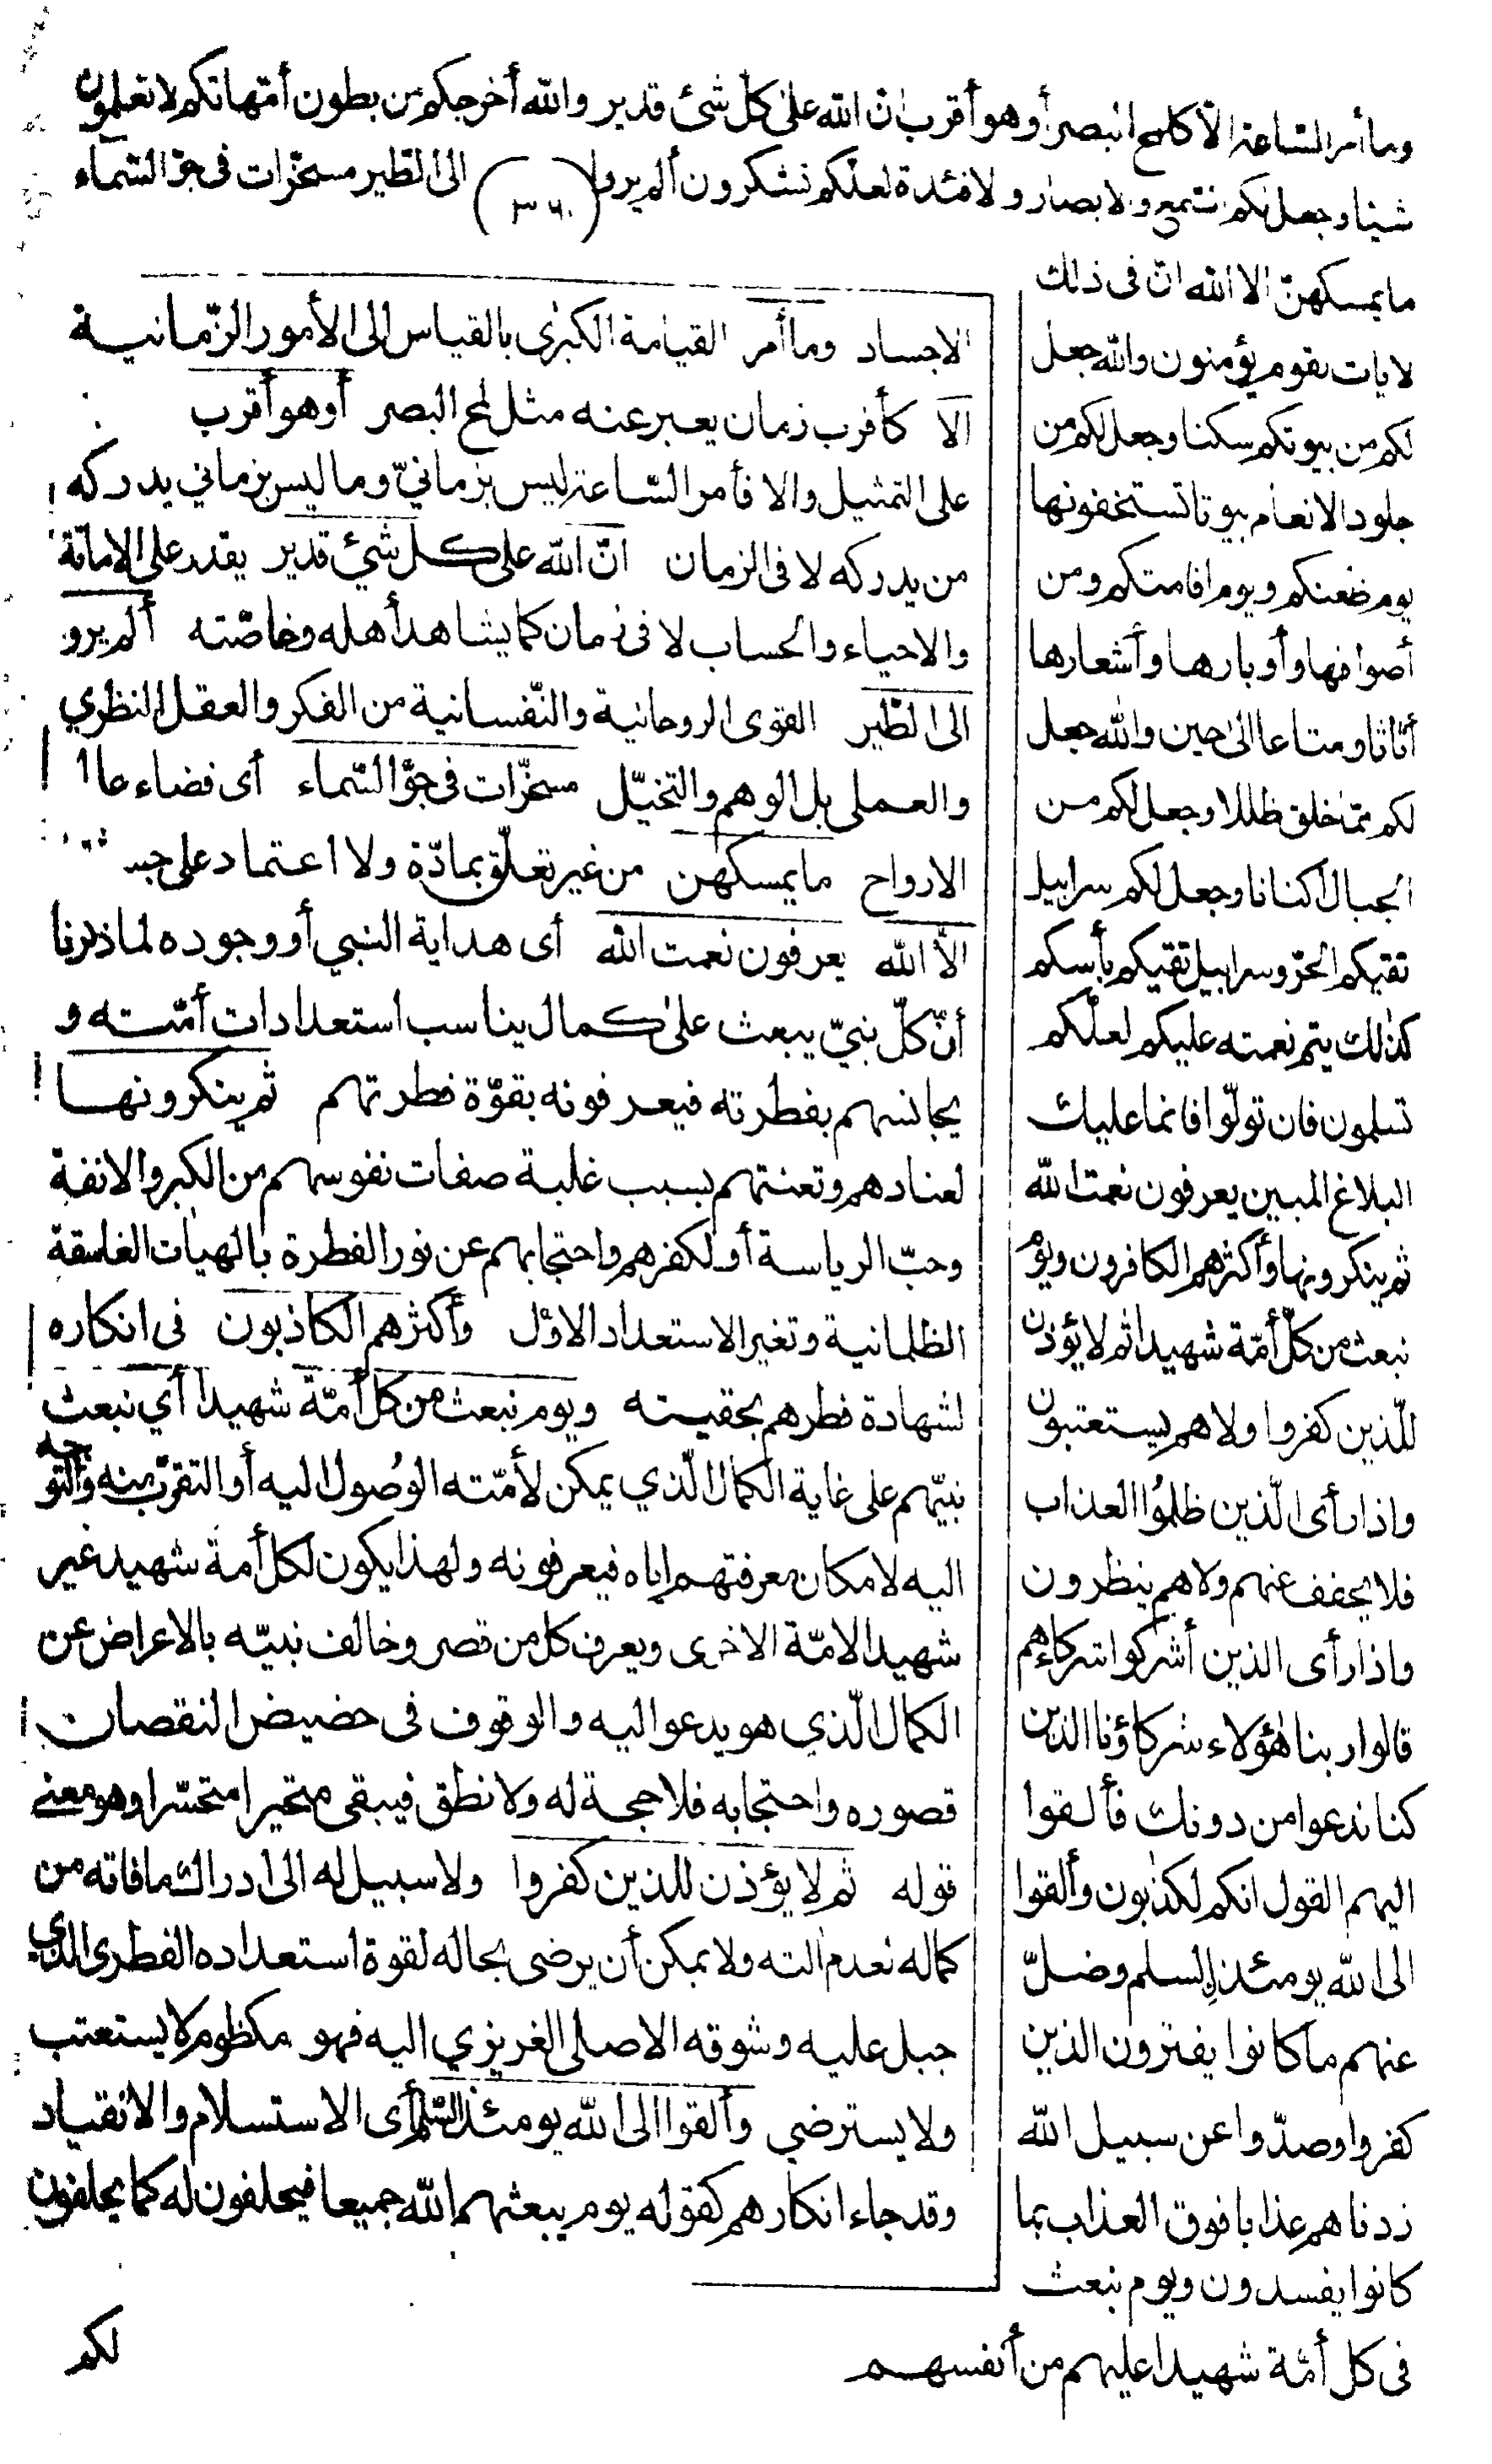 وما أمر الساعة الا كلمح البصر أو هو أقرب ان الله على كل شئ قدير والله أخرجكم من بطون أمهاتكم لا تعلمون
شيئا وجعل لكم السمع والابصار والافئدة لعلكم تشكرون ألم يروا (٣٦٠) الى الطير مسخرات فى جو السماء
ما يمسكهن الا الله ان فى ذلك
لايات لقوم يؤمنون والله جعل
لكم من بيوتكم سكنا وجعل لكم من
جلود الانعام بيوتا تستخفونها
يوم ظعنكم ويوم اقامتكم ومن
أصوافها وأوبارها وأشعارها
أثاثا ومتاعا الى حين والله جعل
لكم مما خلق ظللا وجعل لكم من
الجبال أكنانا وجعل لكم سرابيل
تقيكم الحر وسرابيل تقيكم بأسكم
كذلك يتم نعمته عليكم لعلكم
تسلمون فان تولوا فانما عليك
البلاغ المبين يعرفون نعمت الله
ثم ينكرونها وأكثرهم الكافرون ويوم
نبعث من كل أمة شهيدا ثم لا يؤذن
للذين كفروا ولا هم يستعتبون
واذا رأى الذين ظلموا العذاب
فلا يخفف عنهم ولا هم ينظرون
واذا رأى الذين أشركوا شركاءهم
قالوا ربنا هؤلاء شركاؤنا الذين
كنا ندعوا من دونك فألقوا
اليهم القول انكم لكذبون وألقوا
الى الله يومئذ السلم وضل
عنهم ما كانوا يفترون الذين
كفروا وصدوا عن سبيل الله
زدناهم عذابا فوق العذاب بما
كانوا يفسدون ويوم نبعث
فى كل أمة شهيدا عليهم من أنفسهم
الاجساد وما أمر القيامة الكبرى بالقياس الى الأمور الزمانية
الا كأقرب زمان يعبر عنه مثل لمح البصر أو هو أقرب
على التمثيل والا فأمر الساعة ليس بزماني وما ليس بزماني يدركه
من يدركه لا فى الزمان ان الله على كل شئ قدير يقدر على الاماتة
والاحياء والحساب لا فى زمان كما يشاهد أهله وخاصته ألم يرو
الى الطير القوى الروحانية والنفسانية من الفكر والعقل النظري
والعملى بل الوهم والتخيل مسخرات فى جو السماء أى فضاء عا
الارواح ما يمسكهن من غير تعلق بمادة ولا اعتماد على جسـ
الا الله يعرفون نعمت الله أى هداية النبي أو وجوده لما ذكرنا
أن كل نبي يبعث على كمال يناسب استعدادات أمته و
يجانسهم بفطرته فيعرفونه بقوة فطرتهم ثم ينكرونها
لعنادهم وتعنتهم بسبب غلبة صفات نفوسهم من الكبر والانفة
وحب الرياسة أو لكفرهم واحتجابهم عن نور الفطرة بالهيات الغاسقة
الظلمانية وتغير الاستعداد الاول وأكثرهم الكاذبون فى انكاره
لشهادة فطرهم بحقيته ويوم نبعث من كل أمة شهيدا أي نبعث
نبيهم على غاية الكمال الذي يمكن لأمته الوصول اليه أو التقرب منه والتوجه
اليه لامكان معرفتهم اياه فيعرفونه ولهذا يكون لكل أمة شهيد غير
شهيد الامة الاخرى ويعرف كل من قصر وخالف نبيه بالاعراض عن
الكمال الذي هو يدعو اليه والوقوف فى حضيض النقصان
قصوره واحتجابه فلا حجة له ولا نطق فيبقى متحيرا متحسرا وهو معنى
قوله ثم لا يؤذن للذين كفروا ولا سبيل له الى ادراك ما فاته من
كماله لعدم الته ولا يمكن أن يرضى بحاله لقوة استعداده الفطرى الذي
جبل عليه وشوقه الاصلى الغريزي اليه فهو مكظوم لا يستعتب
ولا يسترضي وألقوا الى الله يومئذ السلم أى الاستسلام والانقياد
وقد جاء انكارهم كقوله يوم يبعثهم الله جميعا فيحلفون له كما يحلفون
لكم